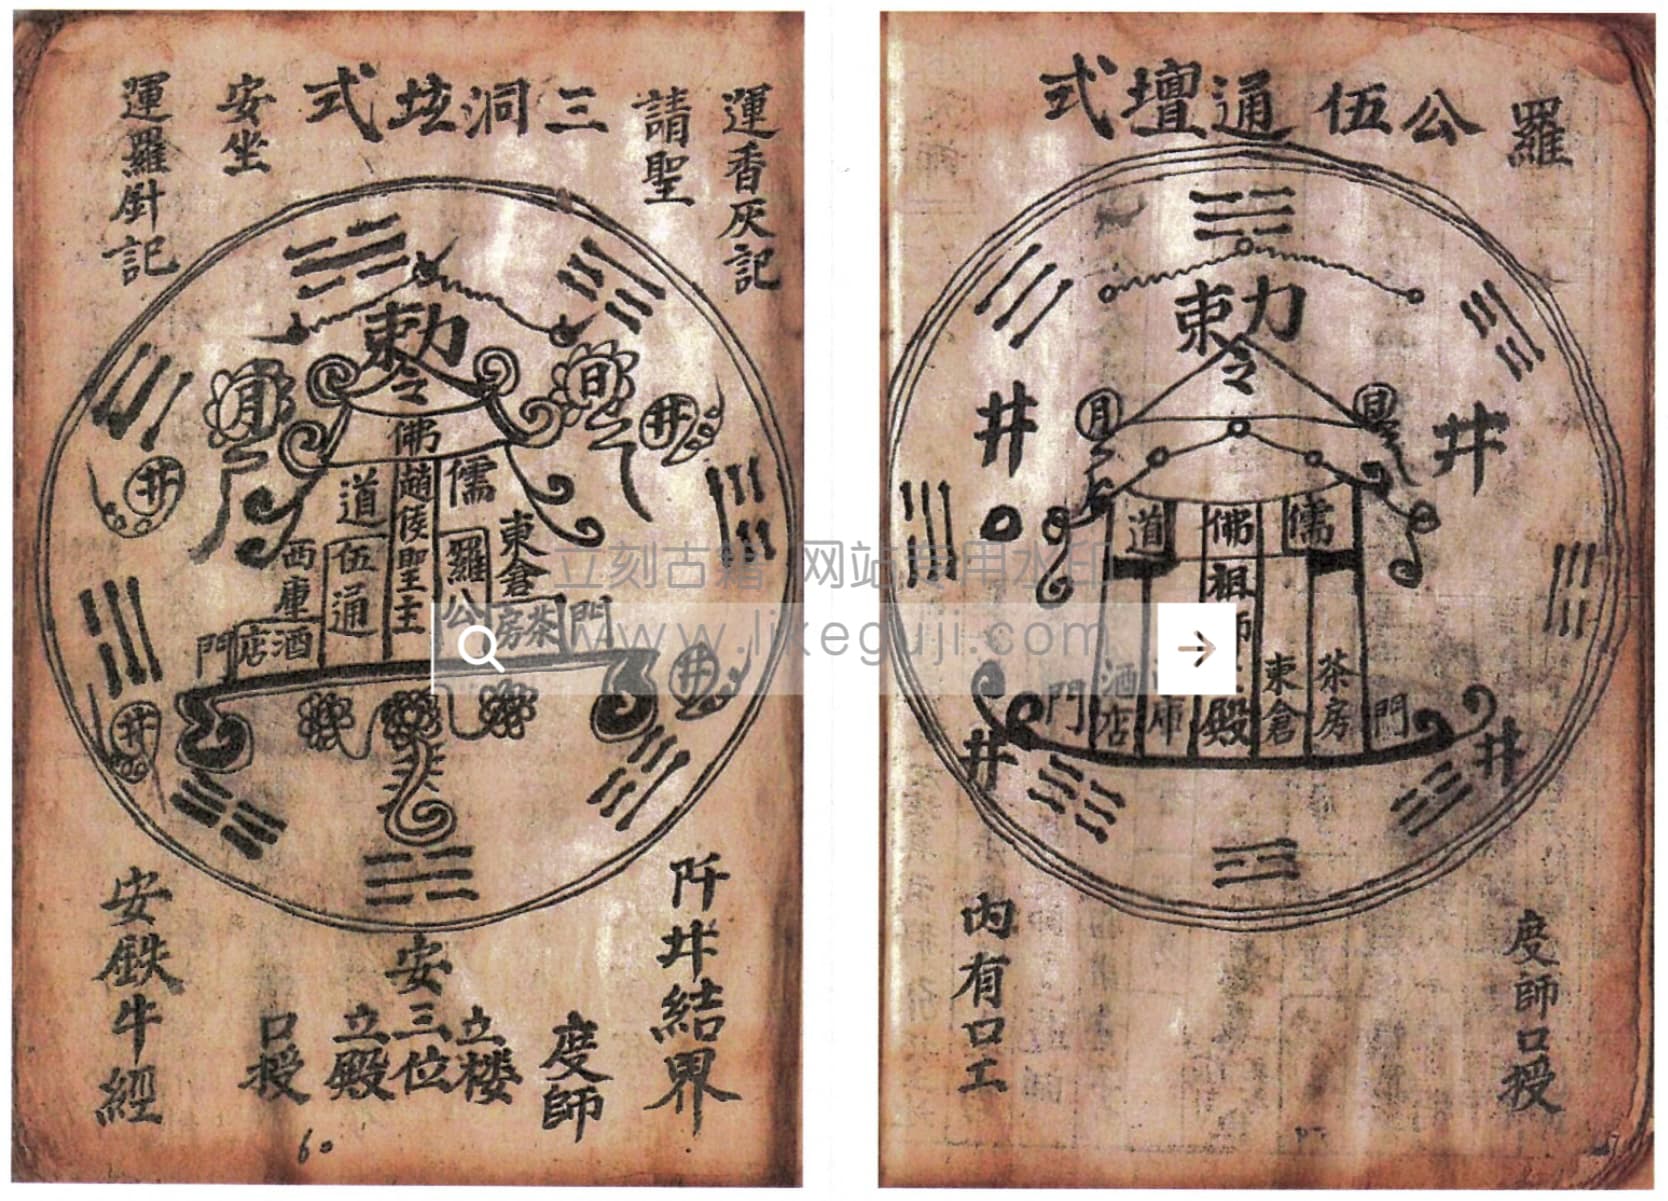 羅
公伍通壇式
勅令
月
日
井
井
道
佛
儒
祖師
殿
門
酒店
庫
東倉
茶房
門
井
井
度師口授
內有口工
運香灰記
請聖
三洞坛式
安坐
運羅針記
勅令
月
日
井
井
佛
道
趙侯聖主
儒
伍通
羅公
西庫
東倉
門
酒店
茶房
門
井
井
結界
度師
安三位
立楼
立殿
口授
安鉄牛經
60
立刻古籍 网站专用水印
www.likeguji.com